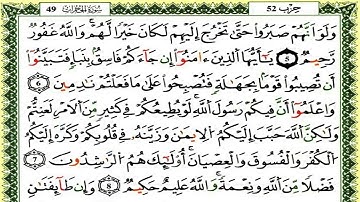 حزب 52 سورة الحجرات 49
وَلَوَ اَنَّهُمْ صَبَرُوا۟ حَتَّىٰ تَخْرُجَ إِلَيْهِمْ لَكَانَ خَيْرًا لَّهُمْ وَاللَّهُ غَفُورٌ
رَّحِيمٌ 5 يَٰٓأَيُّهَا اَ۬لذِينَ ءَامَنُوٓا۟ إِن جَآءَكُمْ فَاسِقٌۢ بِنَبَإٍ فَتَبَيَّنُوٓا۟
أَن تُصِيبُوا۟ قَوْمَۢا بِجَهَٰلَةٍ فَتُصْبِحُوا۟ عَلَىٰ مَا فَعَلْتُمْ نَٰدِمِينَ 6
وَاعْلَمُوٓا۟ أَنَّ فِيكُمْ رَسُولَ اَ۬للَّهِ لَوْ يُطِيعُكُمْ فِى كَثِيرٍ مِّنَ اَ۬لَامْرِ لَعَنِتُّمْ
وَلَٰكِنَّ اَ۬للَّهَ حَبَّبَ إِلَيْكُمُ اُ۬لِايمَٰنَ وَزَيَّنَهُۥ فِى قُلُوبِكُمْ وَكَرَّهَ إِلَيْكُمُ
اُ۬لْكُفْرَ وَالْفُسُوقَ وَالْعِصْيَانَ أُو۟لَٰٓئِكَ هُمُ اُ۬لرَّٰشِدُونَ 7
فَضْلًا مِّنَ اَ۬للَّهِ وَنِعْمَةً وَاللَّهُ عَلِيمٌ حَكِيمٌ 8 وَإِن طَآئِفَتَٰنِ